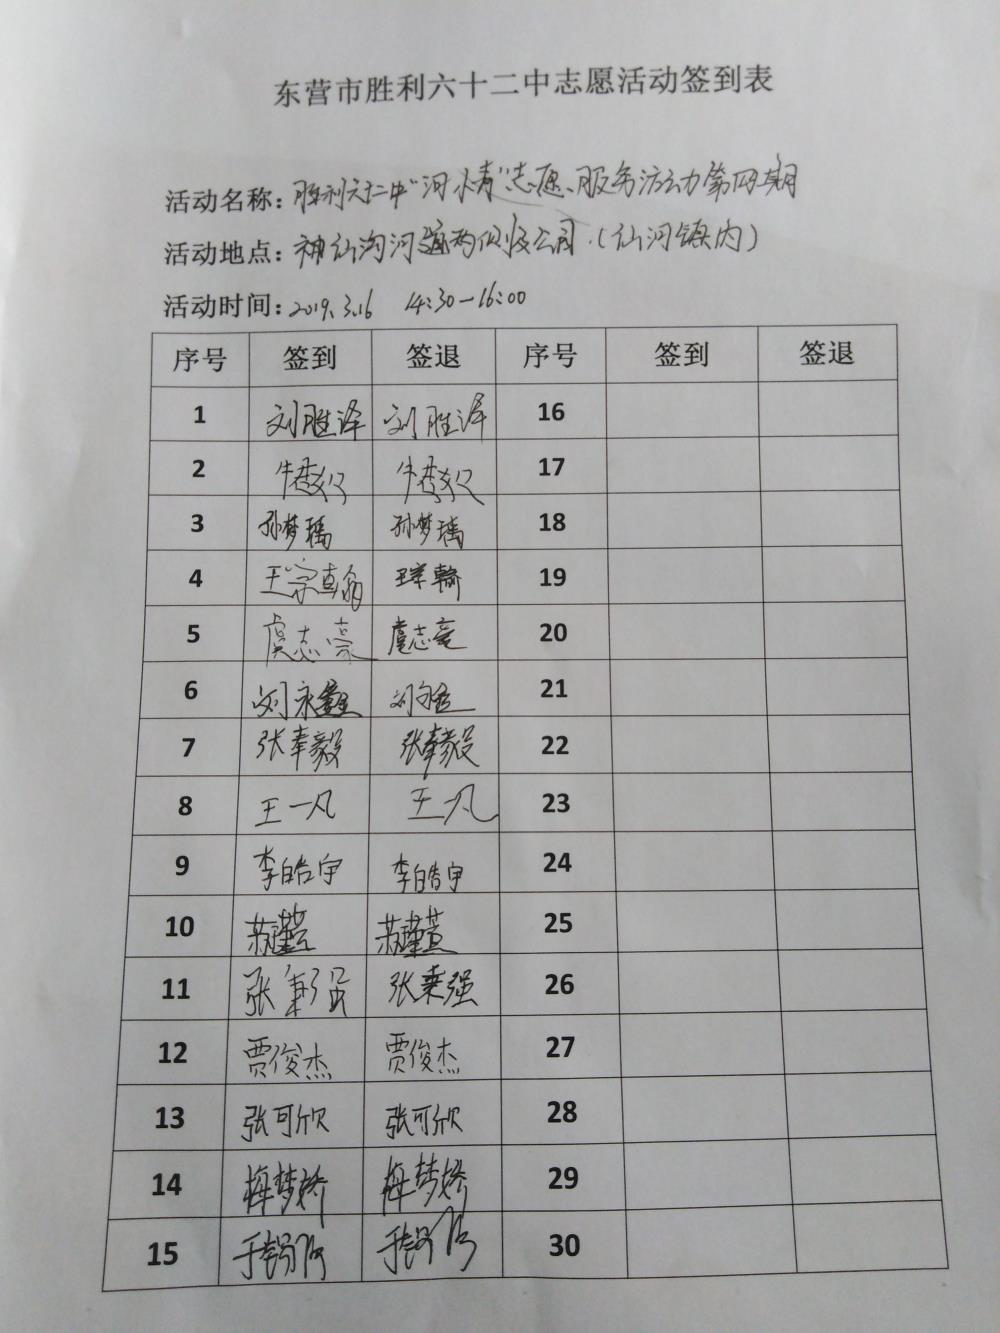 东营市胜利六十二中志愿活动签到表
活动名称：胜利六十二中"河小青"志愿服务活动第四期
活动地点：神仙沟河道两侧（仙河镇内）
活动时间：2019.3.16 14:30—16:00
序号 签到 签退 序号 签到 签退
1 刘胜泽 刘胜泽 16
2 17
3 孙梦瑀 孙梦瑀 18
4 王宗翰 19
5 虞志豪 虞志豪 20
6 刘永鑫 21
7 张奉毅 张奉毅 22
8 王一凡 王一凡 23
9 李皓宇 李皓宇 24
10 苏瑾萱 苏瑾萱 25
11 张秉强 张秉强 26
12 贾俊杰 贾俊杰 27
13 张可欣 张可欣 28
14 梅梦娇 梅梦娇 29
15 30